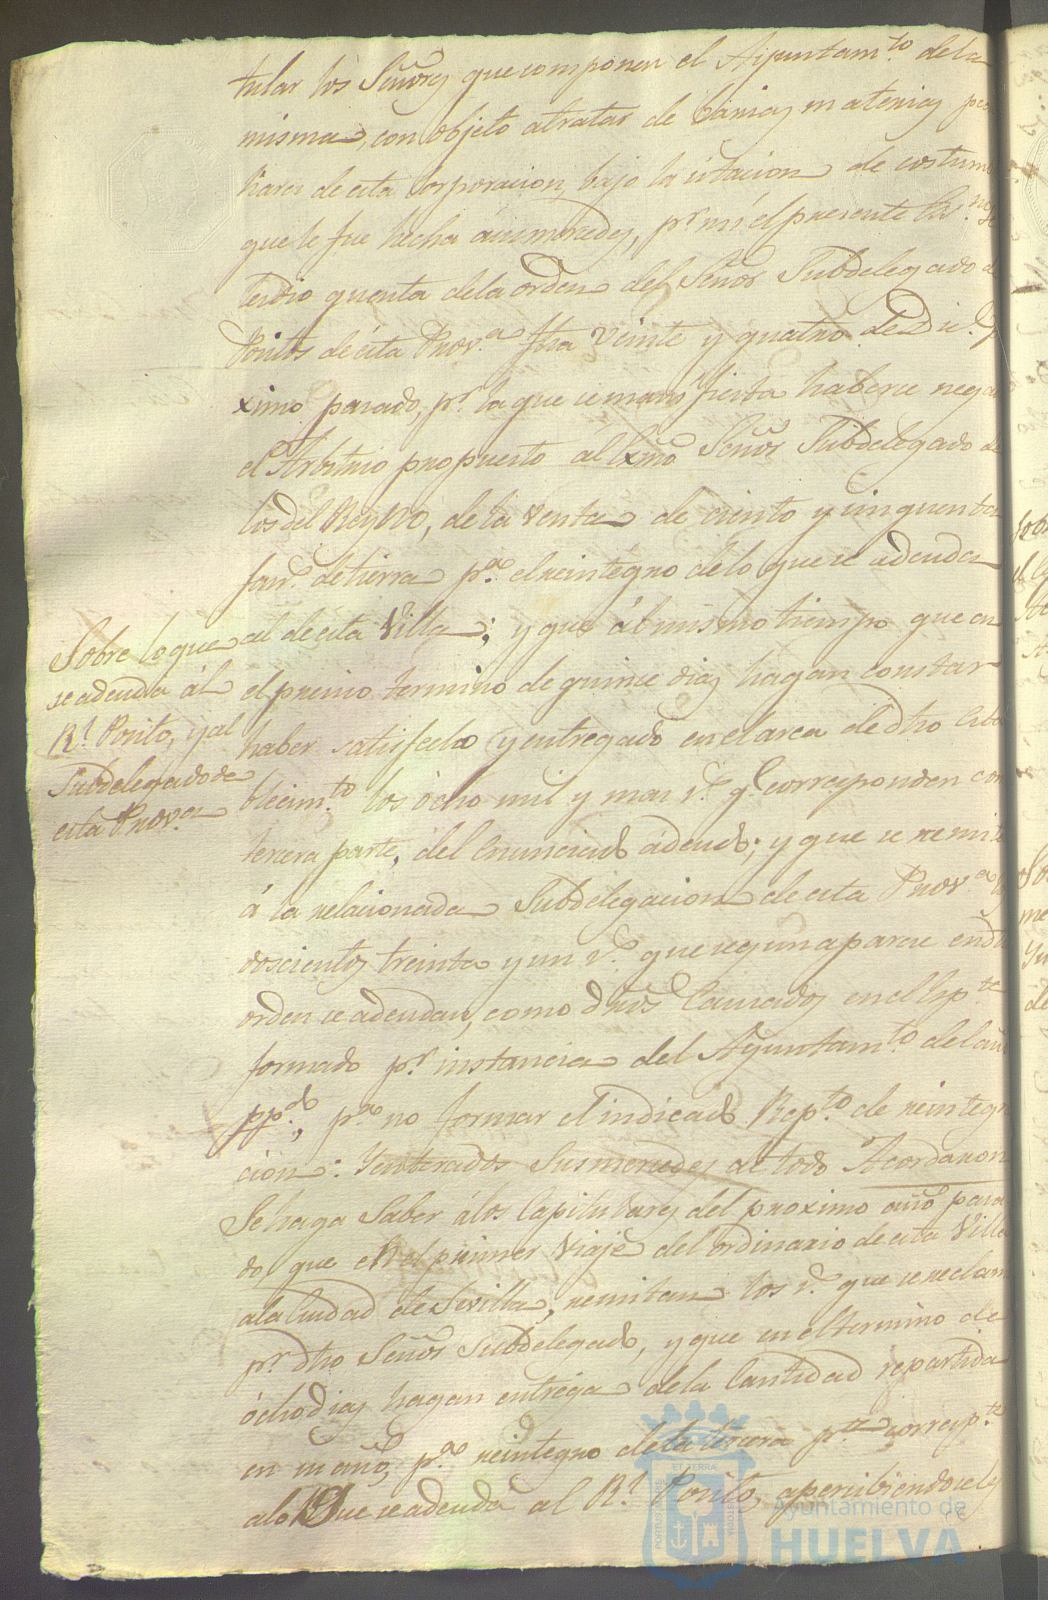 tular los Señores que componen el Ayuntam.to de la
misma, con objeto a tratar de barias materias pecu
liares de esta corporacion, bajo la citacion de costumbre
que le fue hecha a sus mercedes, p.r mi el presente Es.no se
le dio quenta de la orden del Señor Subdelegado de
Positos de esta Prov.a fha veinte y quatro de Dic.e pro
ximo pasado, p.r la que se manifiesta haberse negado
el Arbitrio propuesto al Exmo Señor Subdelegado de
los del Reyno, de la venta de ciento y cinquenta
fan.s de tierra p.a el reintegro de lo que se adeuda
al de esta Villa; y que al mismo tiempo que en
el preciso termino de quince dias hagan constar
haber satisfecho y entregado en el arca de dho Esta
blecim.to los ocho mil y mas r.s q.e corresponden con
tercera parte, del enunciado adeudo; y que se remitan
á la relacionada Subdelegacion de esta Prov.a
doscientos treinta y un r.s que segun aparece en dha
orden se adeudan, como dros causados en el Exp.te
formado p.r instancia del Ayuntam.to del año
pp.do, p.a no formar el indicado Rep.to de reintegra
cion: Ynterados Sus mercedes de todo Acordaron
Se haga saber á los Capitulares del proximo año pasa
do que en el primer viaje del ordinario de esta Villa
a la Ciudad de Sevilla, remitan los r.s que se reclaman
p.r dho Señor Subdelegado, y que en el termino de
ócho dias hagan entrega de la Cantidad repartida
en su año, p.a reintegro de la tercera p.te corresp.te
a lo que se adeuda al R.l Posito, apercibiendoseles
Sobre lo que
se adeuda ál
R.l Posito, y al
Subdelegado de
esta Prov.a
Ayuntamiento de
HUELVA